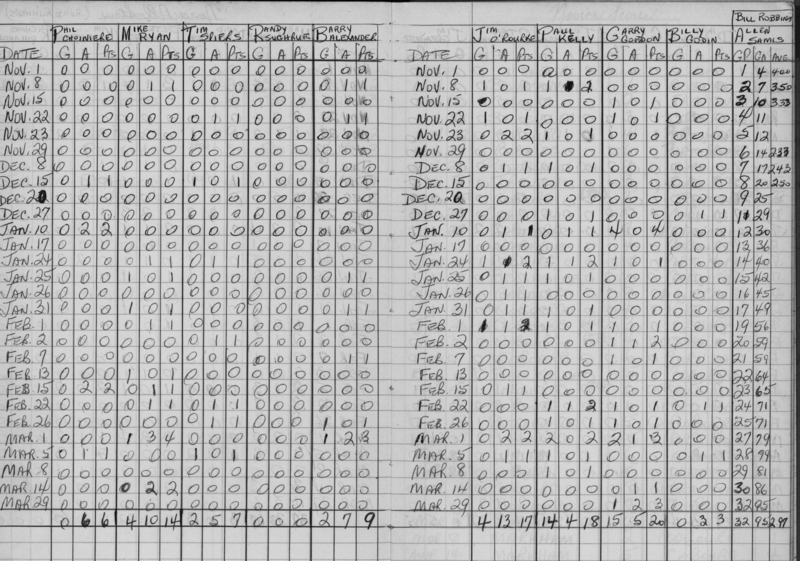 PHIL MIKE TIM RANDY BARRY JIM PAUL GARRY BILLY BILL ROBBINS
CHOINIERE RYAN SPIERS ALEXANDER O'ROURKE KELLY GORDON GODIN ALLEN SAMIS
DATE G A Pts G A Pts G A Pts G A Pts G A Pts DATE G A Pts G A Pts G A Pts G A Pts GP GA AVE
NOV. 1 0 0 0 0 0 0 0 0 0 0 0 0 0 0 0 NOV. 1 0 0 0 0 0 0 0 0 0 0 0 0 1 4 400
NOV. 8 0 0 0 0 1 1 0 0 0 0 0 0 0 1 1 NOV. 8 1 0 1 1 2 0 0 0 0 0 0 2 7 350
NOV. 15 0 0 0 0 0 0 0 0 0 0 0 0 0 0 0 NOV. 15 0 0 0 0 0 0 1 0 1 0 0 0 3 10 333
NOV. 22 0 0 0 0 0 0 0 1 1 0 0 0 0 1 1 NOV. 22 1 0 1 0 0 0 1 0 1 0 0 0 4 11
NOV. 23 0 0 0 0 0 0 0 0 0 0 0 0 0 0 0 NOV. 23 0 2 2 1 0 1 0 0 0 0 0 0 5 12
NOV. 29 0 0 0 0 0 0 0 0 0 0 0 0 0 0 0 NOV. 29 0 0 0 0 0 0 0 0 0 0 0 0 6 14 233
DEC. 8 0 0 0 0 0 0 0 0 0 0 0 0 0 0 0 DEC. 8 0 1 1 1 0 1 1 0 1 0 0 0 7 17 243
DEC. 15 0 1 1 0 0 0 1 0 1 0 0 0 0 0 0 DEC. 15 0 0 0 0 0 0 0 0 0 0 0 0 8 20 250
DEC. 20 0 0 0 0 0 0 0 0 0 0 0 0 0 0 0 DEC. 20 0 0 0 0 0 0 0 0 0 0 0 0 9 25
DEC. 27 0 0 0 0 0 0 0 0 0 0 0 0 0 0 0 DEC. 27 0 0 0 1 0 1 0 0 0 0 1 1 29
JAN. 10 0 2 2 0 0 0 0 0 0 0 0 0 0 0 0 JAN. 10 0 1 1 0 1 1 4 0 4 0 0 0 12 30
JAN. 17 0 0 0 0 0 0 0 0 0 0 0 0 0 0 0 JAN. 17 0 0 0 0 0 0 0 0 0 0 0 0 13 36
JAN. 24 0 0 0 0 1 1 0 1 1 0 0 0 0 0 0 JAN. 24 1 2 1 1 2 1 0 1 0 0 0 14 40
JAN. 25 0 0 0 1 0 1 0 0 0 0 0 0 0 1 1 JAN. 25 0 1 1 1 0 1 0 0 0 0 0 0 15 42
JAN. 26 0 0 0 0 0 0 0 0 0 0 0 0 0 0 0 JAN. 26 0 1 1 0 0 0 0 0 0 0 0 0 16 45
JAN. 31 0 0 0 1 0 1 0 0 0 0 0 0 0 0 0 JAN. 31 0 1 1 1 0 1 1 0 1 0 0 0 17 49
FEB. 1 0 0 0 0 1 1 0 0 0 0 0 0 0 0 0 FEB. 1 1 1 2 1 0 1 1 0 1 0 0 0 19 56
FEB. 2 0 0 0 0 0 0 0 1 1 0 0 0 0 0 0 FEB. 2 0 0 0 0 0 0 1 1 2 0 0 0 20 59
FEB. 7 0 0 0 0 0 0 0 0 0 0 0 0 0 1 1 FEB. 7 0 0 0 0 0 0 1 0 1 0 0 0 21 59
FEB. 13 0 0 0 1 0 1 0 0 0 0 0 0 0 0 0 FEB. 13 0 0 0 0 0 0 0 0 0 0 0 0 22 64
FEB. 15 0 2 2 0 1 1 0 0 0 0 0 0 0 0 0 FEB. 15 0 1 1 0 0 0 0 0 0 0 0 0 23 65
FEB. 22 0 0 0 0 1 1 0 1 1 0 0 0 0 0 0 FEB. 22 0 0 0 1 1 2 1 0 1 0 1 1 24 71
FEB. 26 0 0 0 0 0 0 0 1 1 0 0 0 1 0 1 FEB. 26 0 0 0 1 0 1 1 0 1 0 0 0 25 71
MAR. 1 0 0 0 1 3 4 0 0 0 0 0 0 1 2 3 MAR. 1 0 2 2 2 0 2 2 1 3 0 0 0 27 79
MAR. 5 0 1 1 0 0 0 1 0 1 0 0 0 0 0 0 MAR. 5 0 1 1 1 0 1 0 0 0 0 1 1 28 79
MAR. 8 0 0 0 0 0 0 0 0 0 0 0 0 0 0 0 MAR. 8 0 0 0 1 0 1 0 0 0 0 0 0 29 81
MAR. 14 0 0 0 0 2 2 0 0 0 0 0 0 0 0 0 MAR. 14 0 0 0 0 0 0 0 1 1 0 0 0 30 86
MAR. 29 0 0 0 0 0 0 0 0 0 0 0 0 0 0 0 MAR. 29 0 0 0 0 0 0 1 2 3 0 0 0 32 95
0 6 6 4 10 14 2 5 7 0 0 0 2 7 9 4 13 17 14 4 18 15 5 20 0 3 3 32 95 297